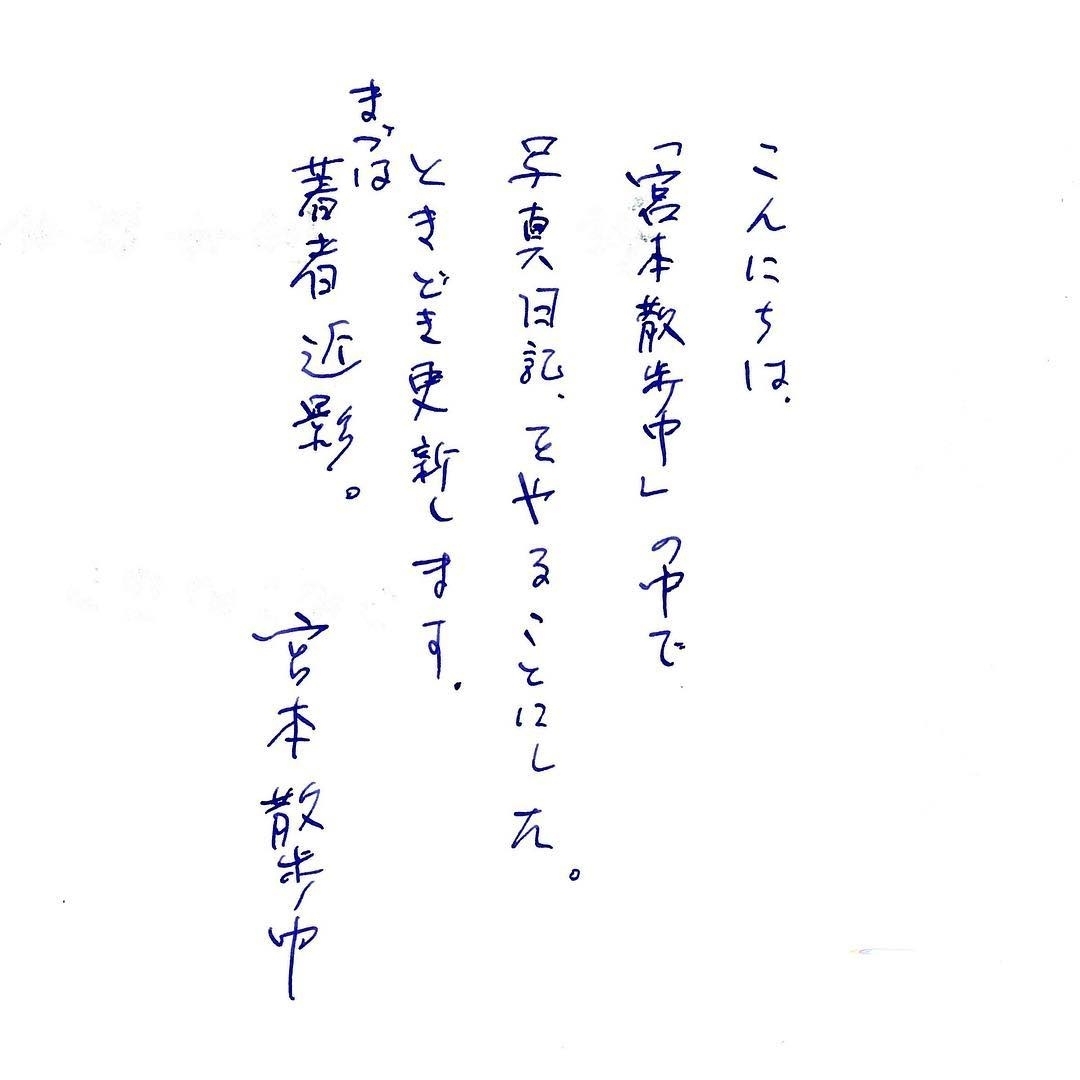 こんにちは.
「宮本散歩中」の中で
写真日記、をやることにした。
ときどき更新します.
まづは
著者近影。
宮本散歩中